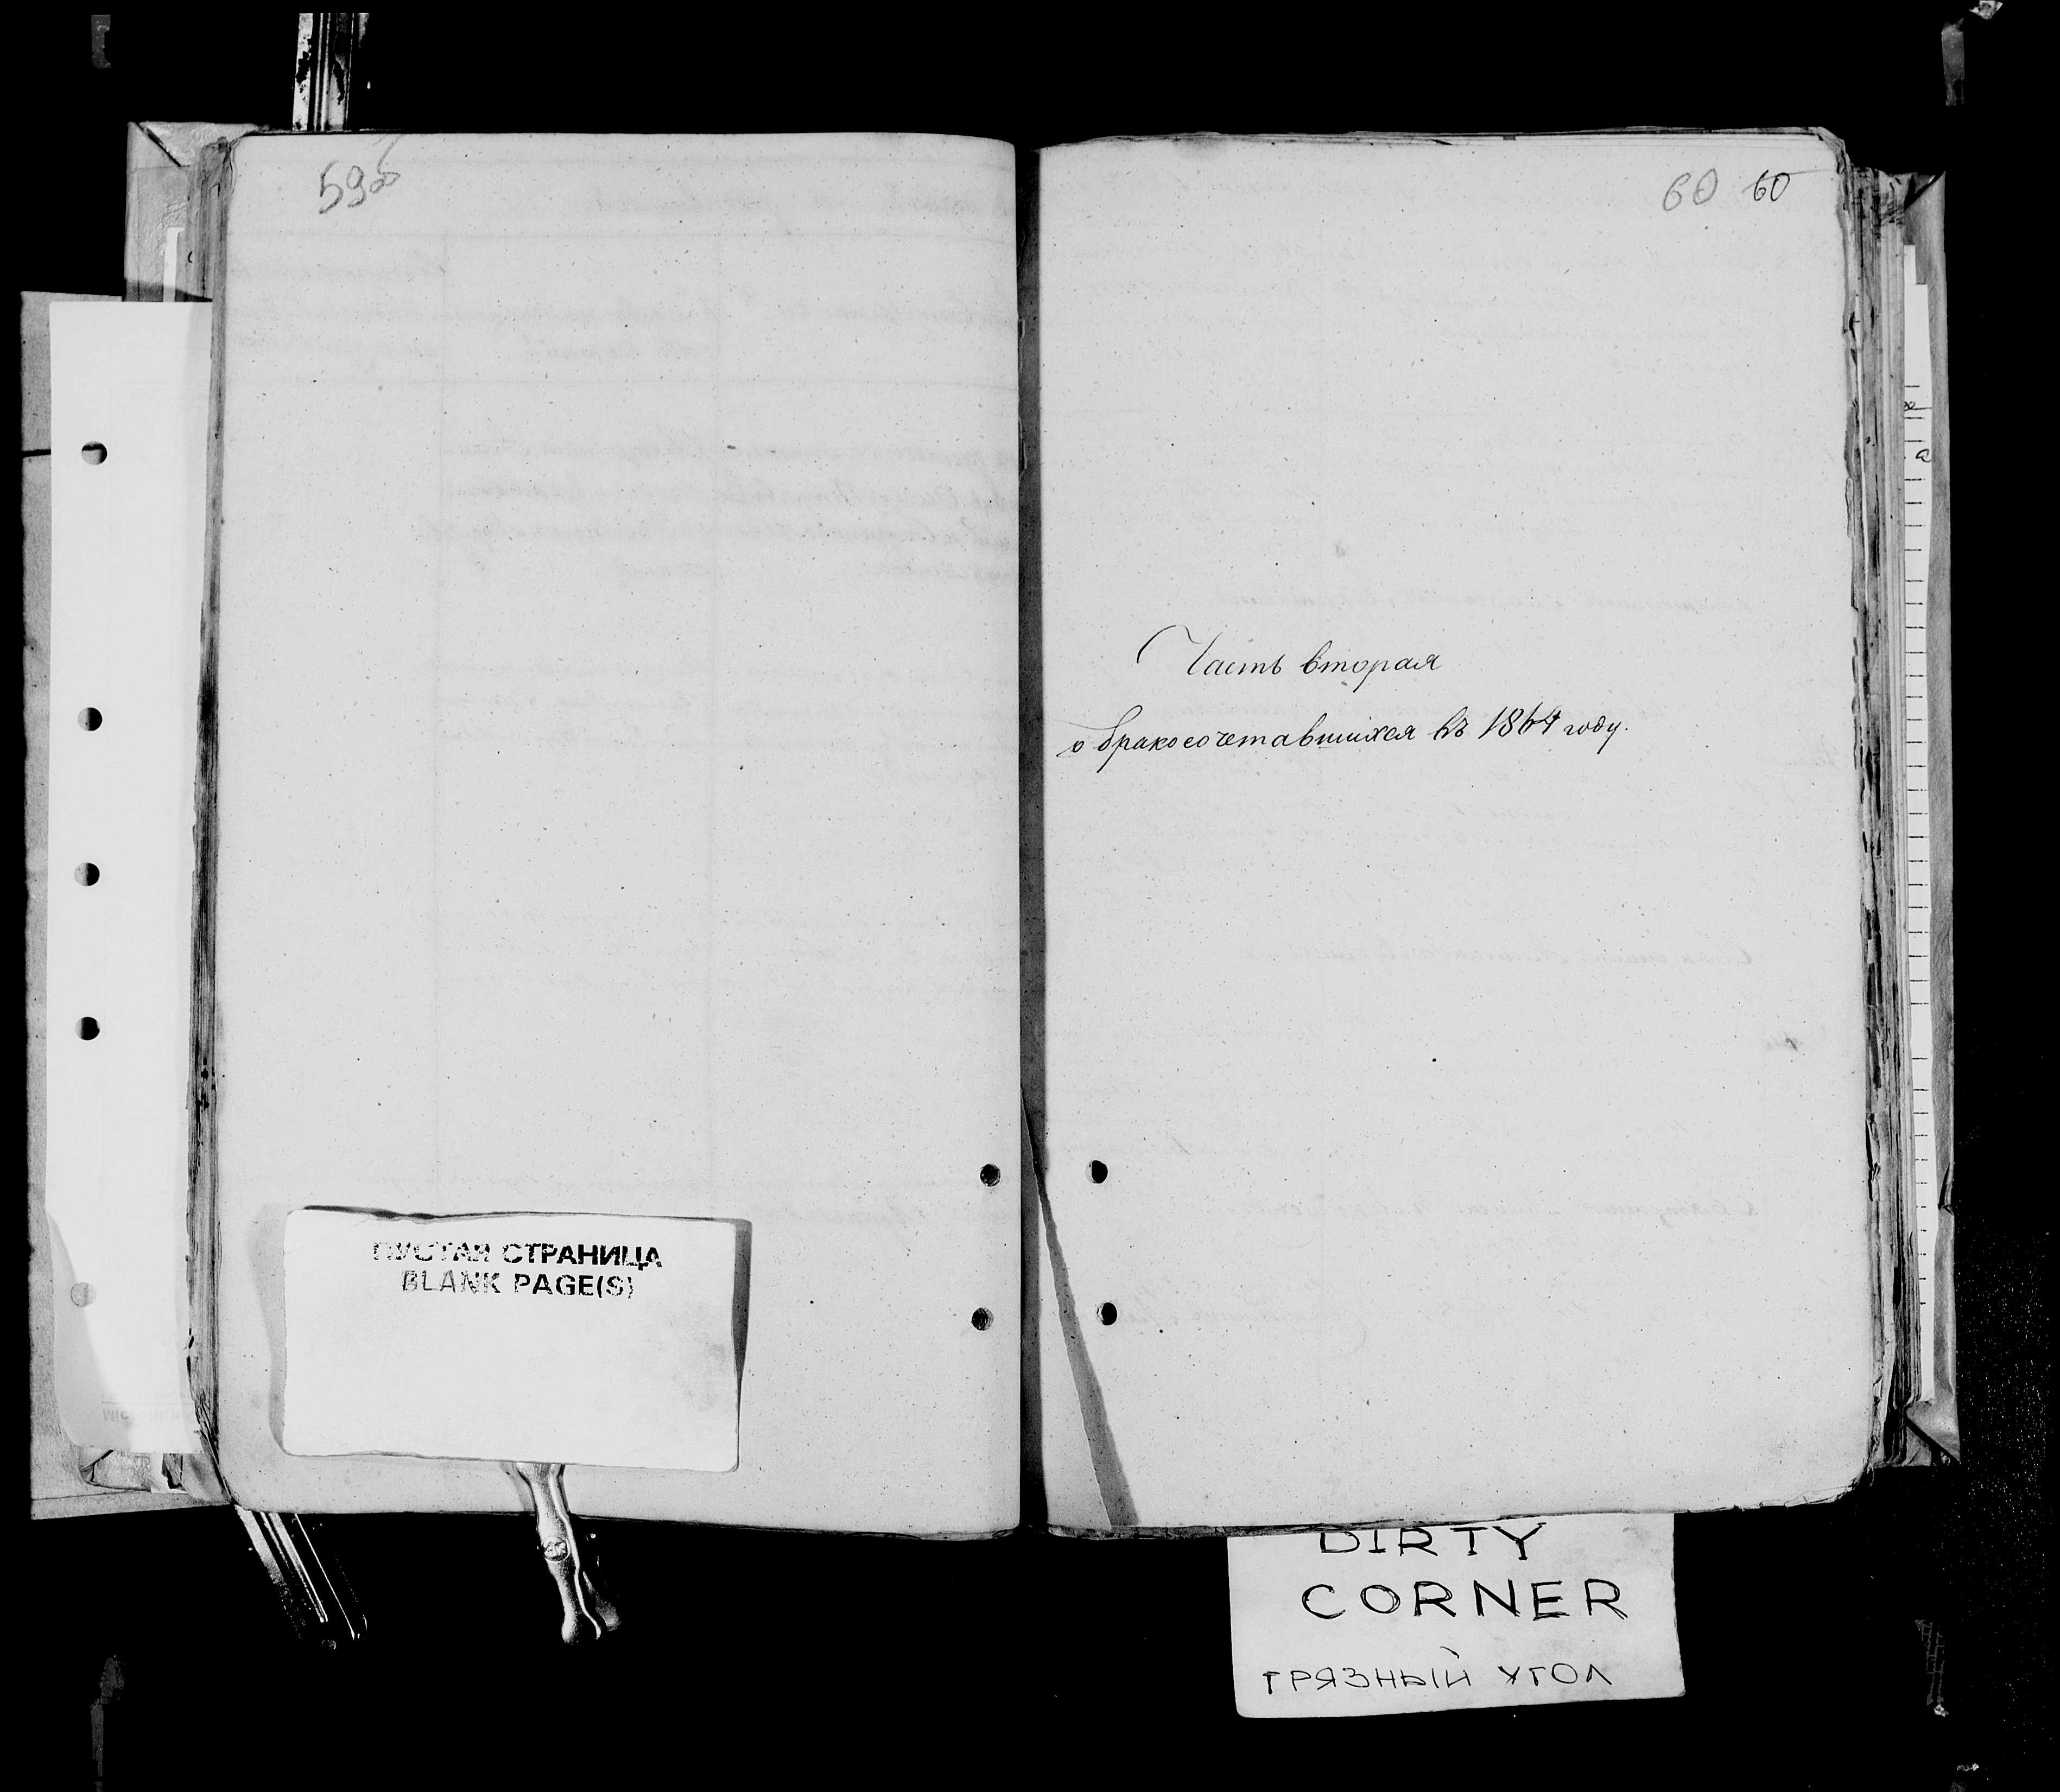 59об
60 60
Часть вторая
о бракосочетавшихся въ 1864 году.
ПУСТАЯ СТРАНИЦА
BLANK PAGE(S)
DIRTY
CORNER
ГРЯЗНЫЙ УГОЛ